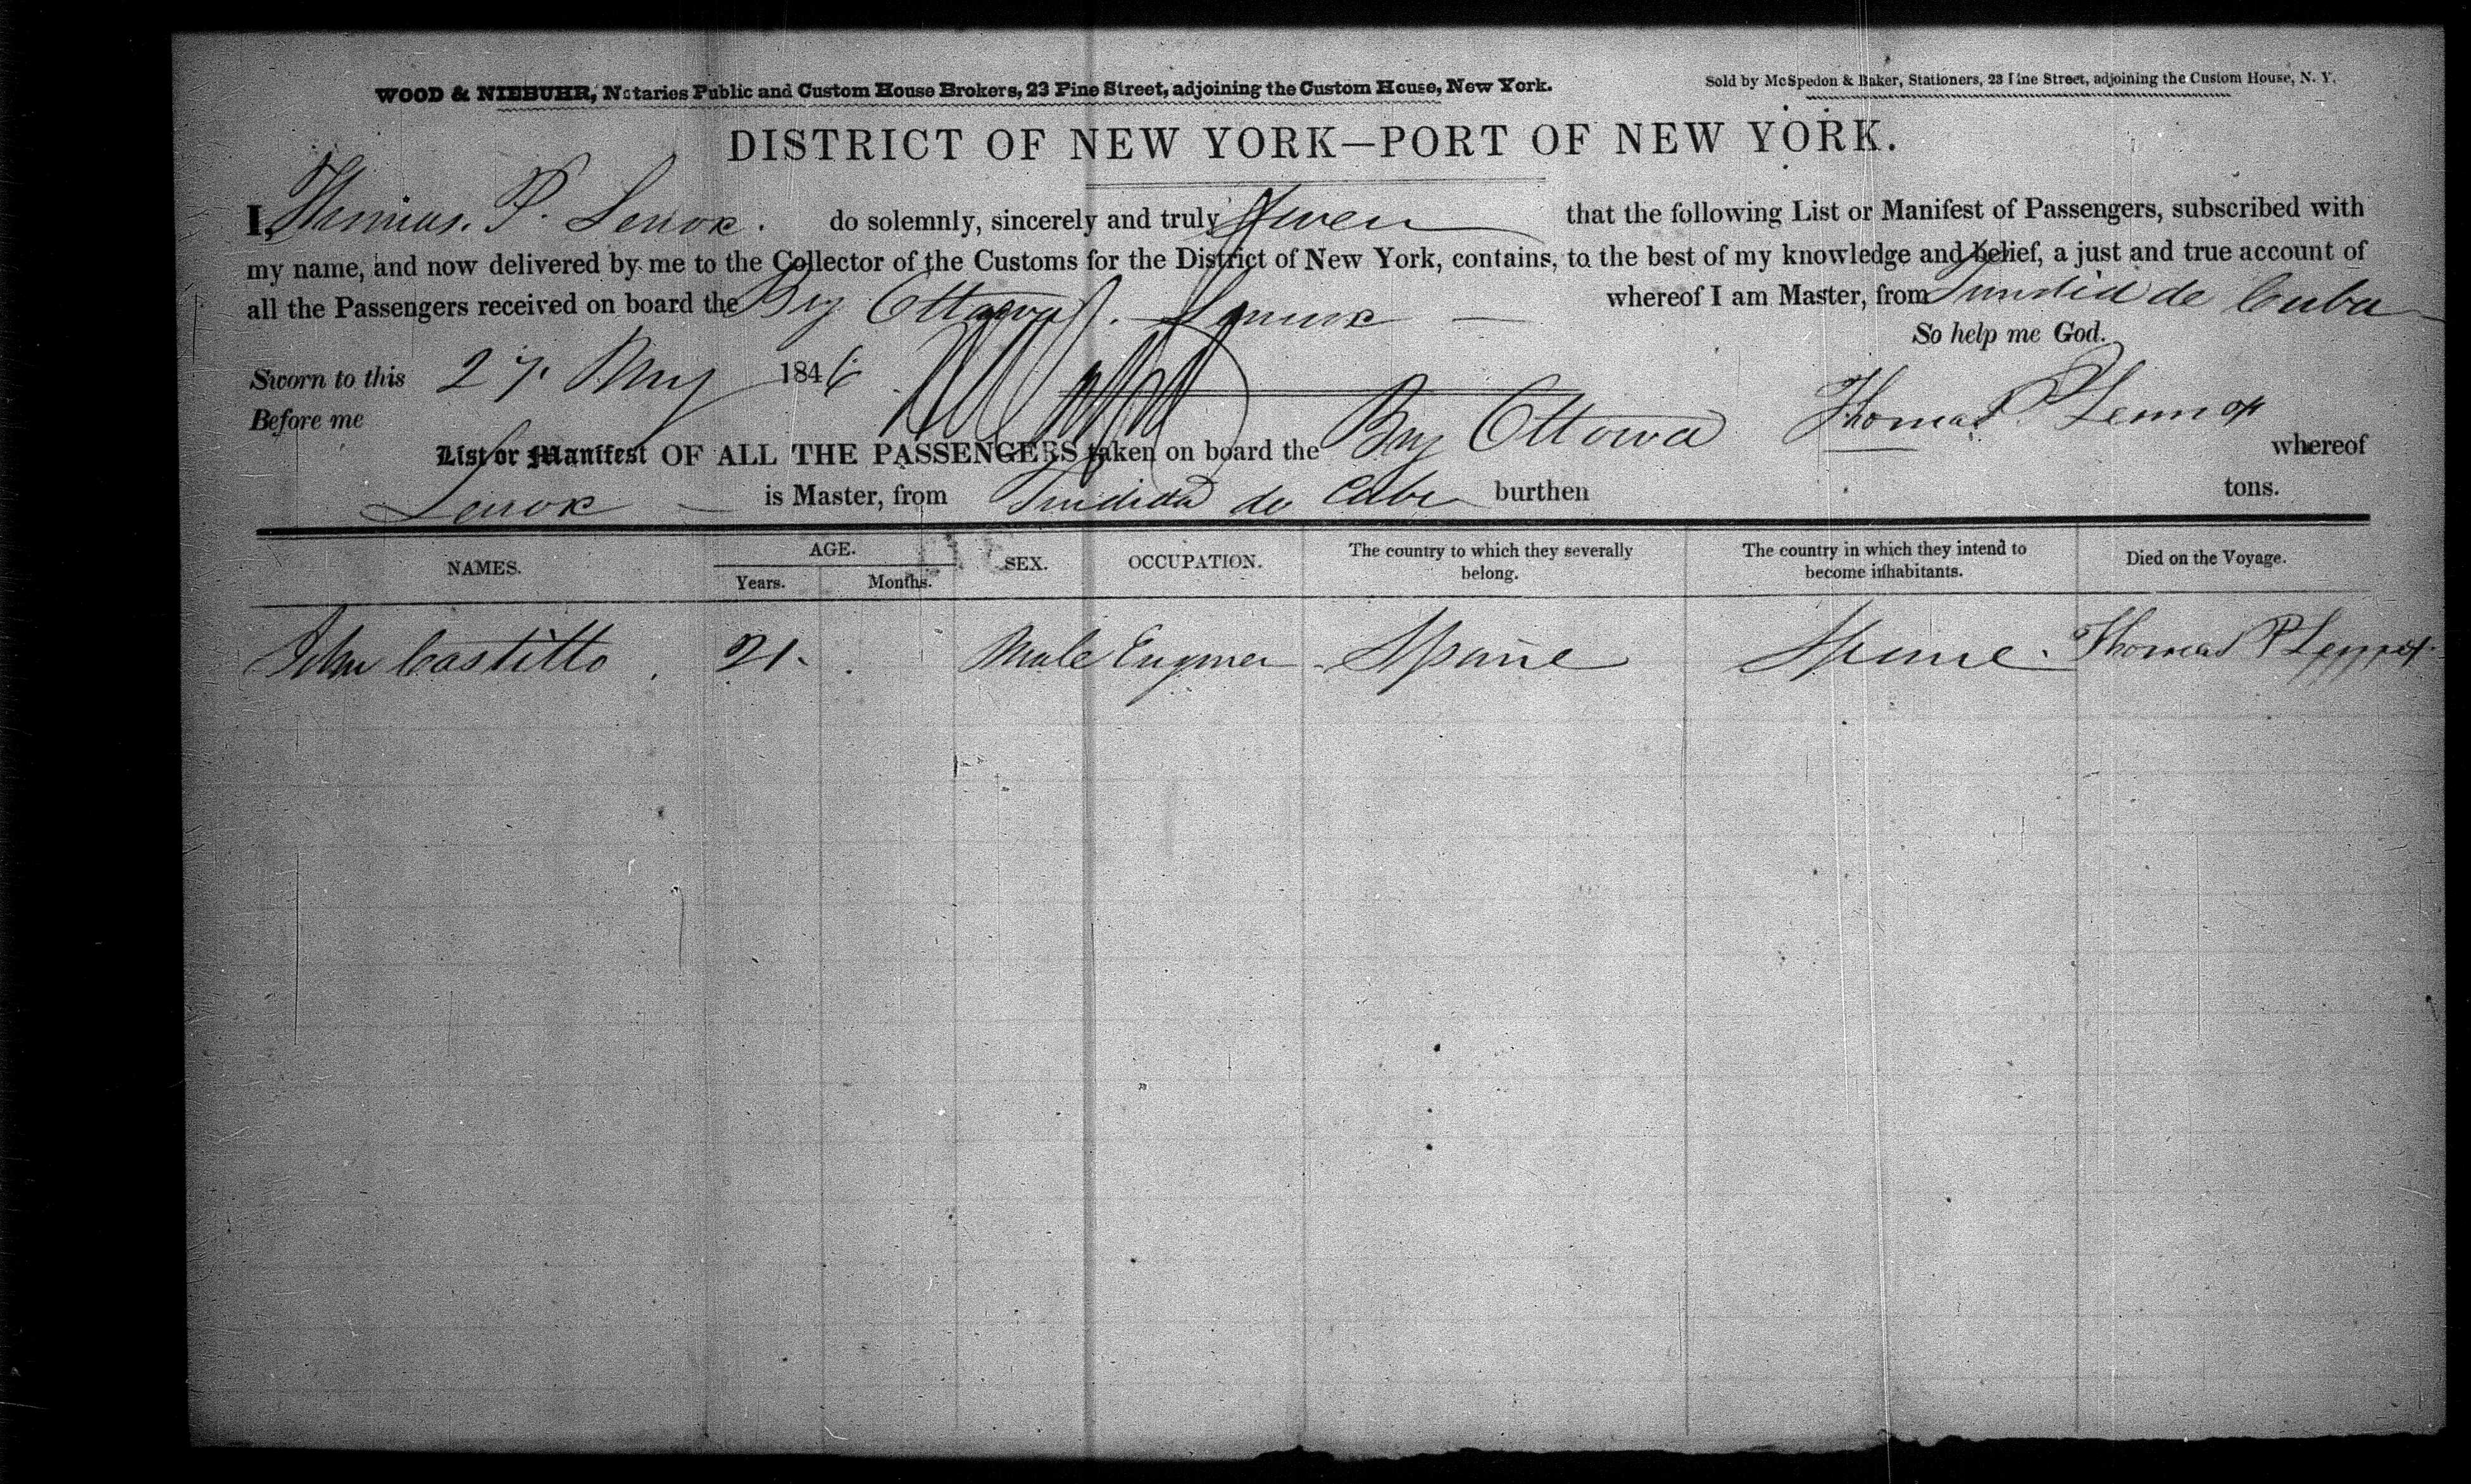 WOOD & NIEBUHR, Notaries Public and Custom House Brokers, 23 Pine Street, adjoining the Custom House, New York.
Sold by McSpedon & Baker, Stationers, 23 Pine Street, adjoining the Custom House, N. Y.
DISTRICT OF NEW YORK—PORT OF NEW YORK.
I, Thomas. P. Lenox. do solemnly, sincerely and truly Swear that the following List or Manifest of Passengers, subscribed with
my name, and now delivered by me to the Collector of the Customs for the District of New York, contains, to the best of my knowledge and belief, a just and true account of
all the Passengers received on board the Brig Ottawa. Lenox whereof I am Master, from Trinidad de Cuba
So help me God.
Sworn to this 27. May 1846
Before me
Thomas P Lennox
List or Manifest OF ALL THE PASSENGERS taken on board the Brig Ottawa whereof
Lenox is Master, from Trinidad de Cuba burthen tons.
NAMES. AGE. SEX. OCCUPATION. The country to which they severally belong. The country in which they intend to become inhabitants. Died on the Voyage.
Years. Months.
John Castillo. 21. Male Engineer Spaine Spaine. Thomas P Lennox